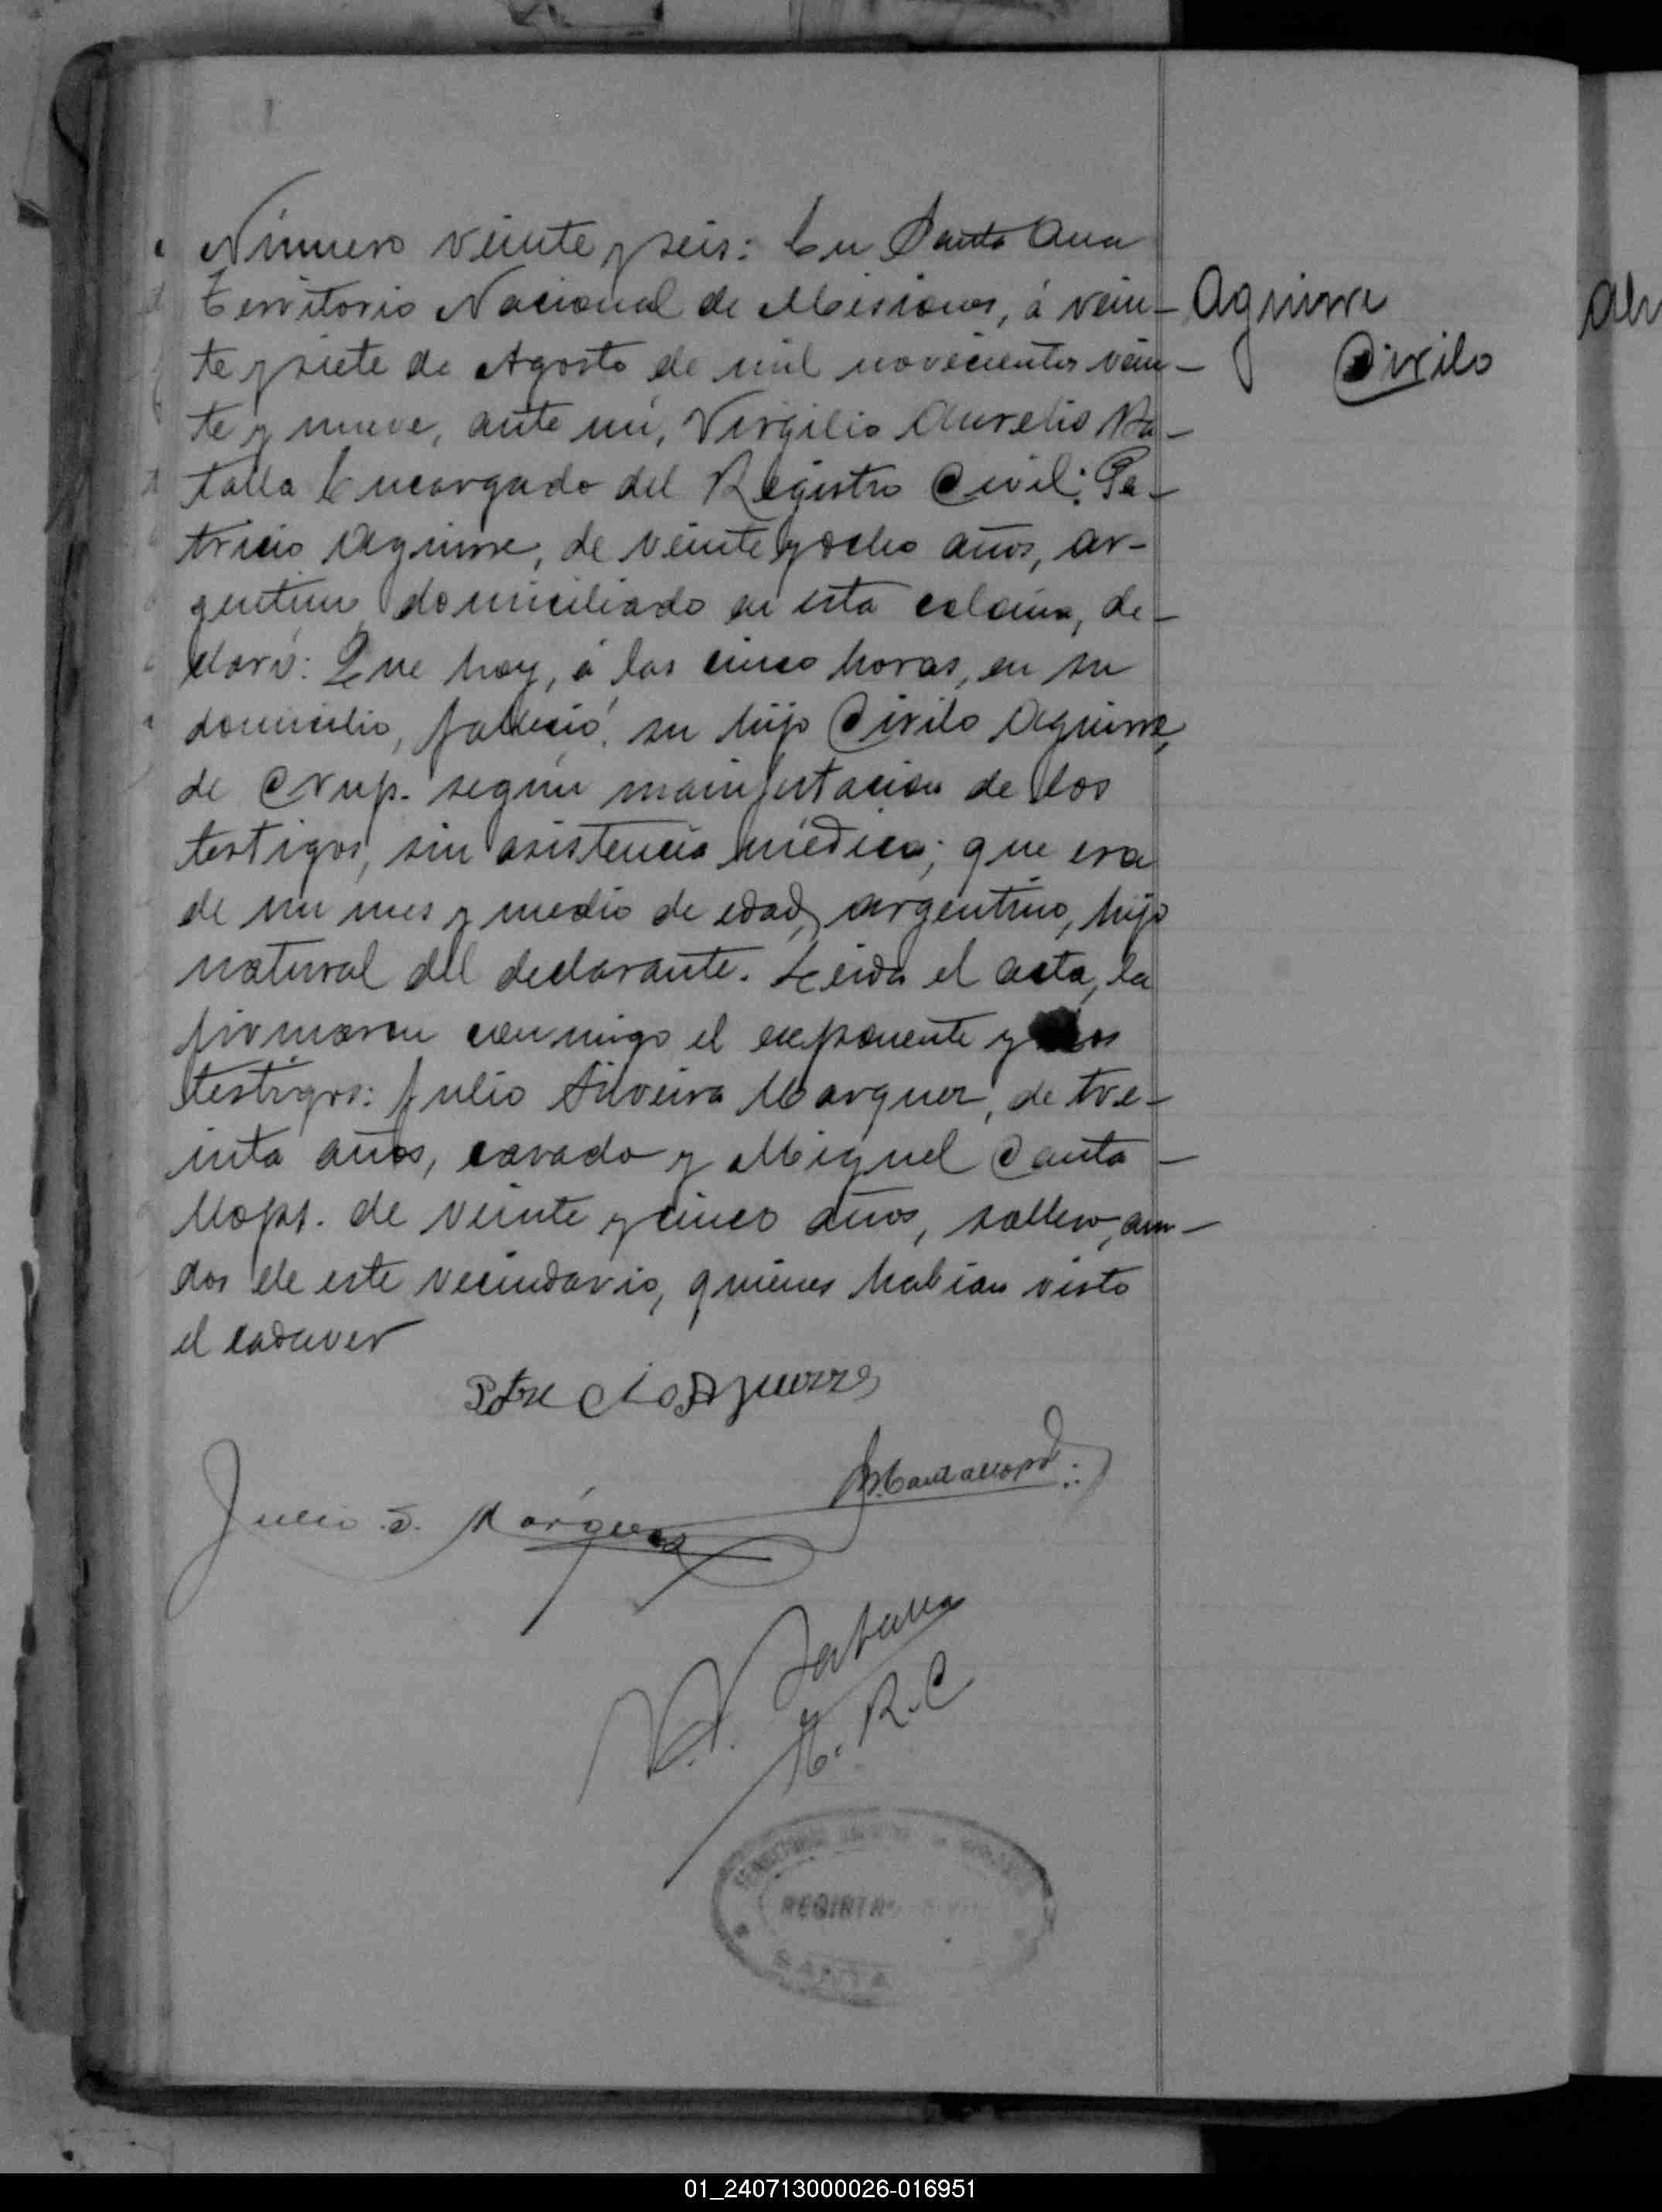 Número veinte y seis: En Santa Ana
Territorio Nacional de Misiones, á vein-
te y siete de Agosto de mil novecientos vein-
te y nueve, ante mí, Virgilio Aurelio Ba-
talla Encargado del Registro Civil: Pa-
tricio Aguirre, de veinte y ocho años, ar-
gentino domiciliado en esta colonia, de-
claró: Que hoy, á las cinco horas, en su
domicilio, falleció, su hijo Cirilo Aguirre,
de Crup. según manifestación de los
testigos, sin asistencia médica; que era
de un mes y medio de edad, argentino, hijo
natural del declarante. Leida el acta, la
firmaron conmigo el exponente y los
testigos: Julio Silveira Marquez, de tre-
inta años, casado y Miguel Canta-
llops. de veinte y cinco años, soltero, am-
dos de este vecindario, quienes habian visto
el cadaver
Aguirre
Cirilo
Aguirre
Julio S. Márquez
M. Cantallops
V. A. Batalla
E. R. C
REGISTRO
SANTA
01_240713000026-016951